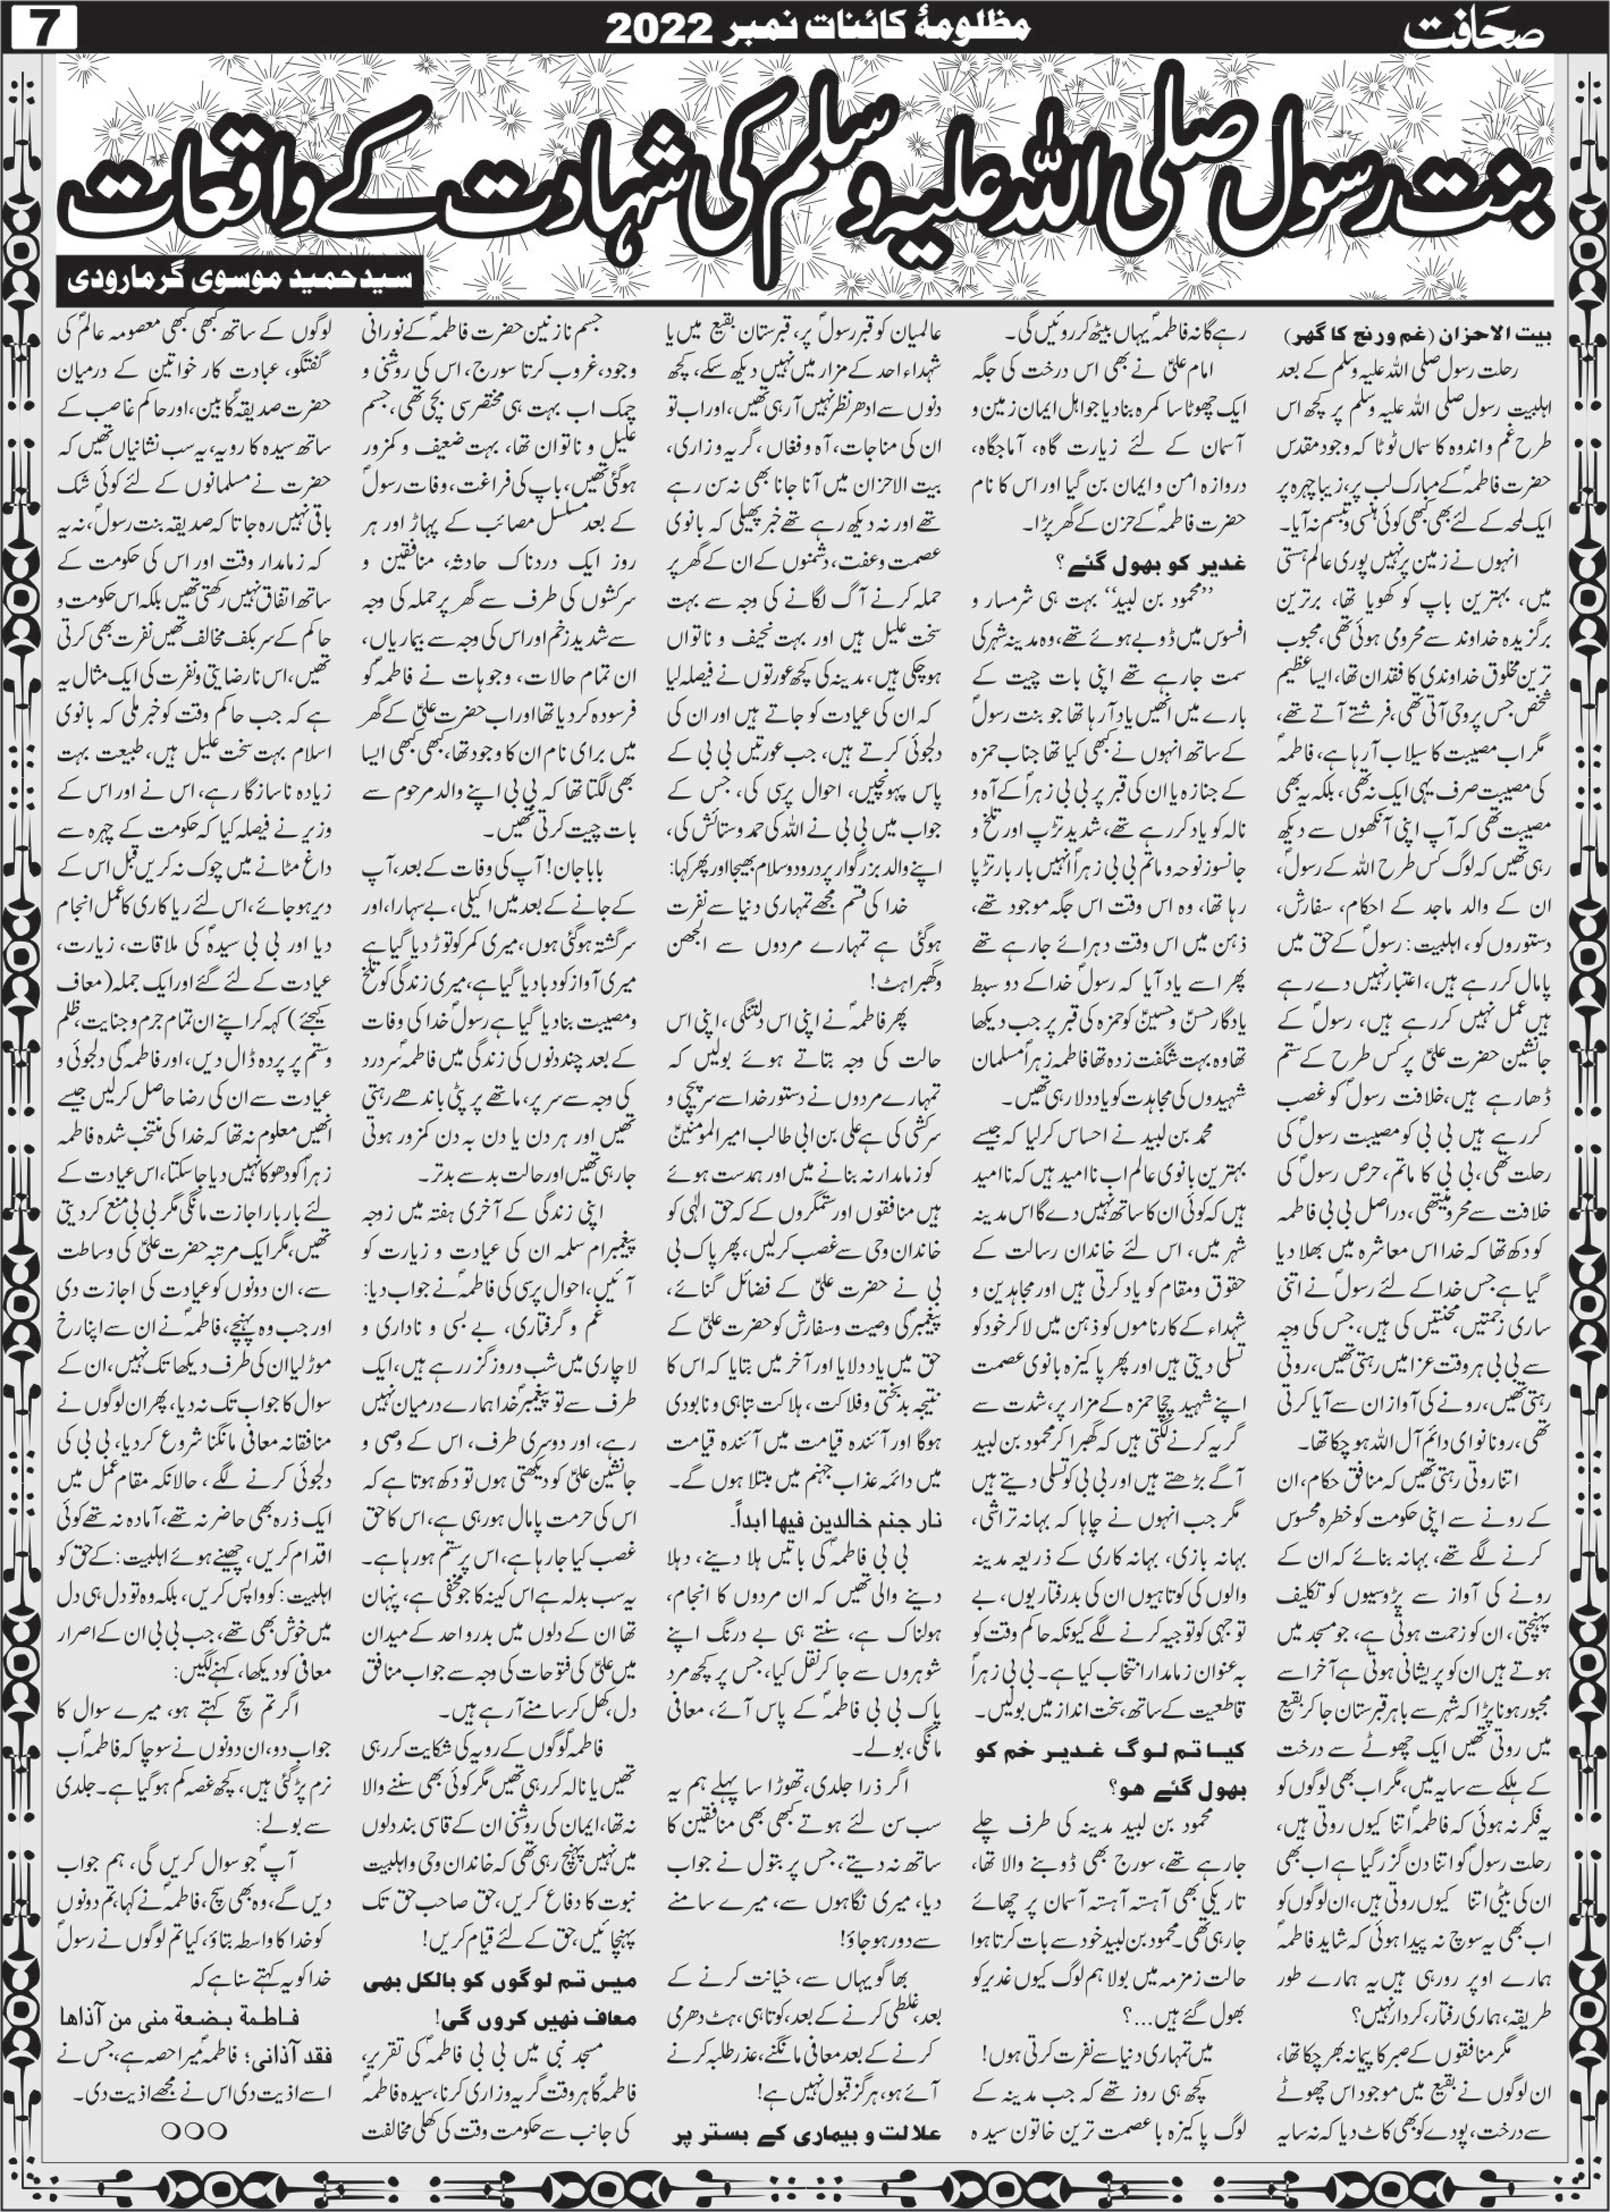 صحافت
مظلومۂ کائنات نمبر 2022
7
بنت رسول صلی اللہ علیہ وسلم کی شہادت کے واقعات
سید حمید موسوی گرمارودی
بیت الاحزان (غم ورنج کا گھر)
رحلت رسول صلی اللہ علیہ وسلم کے بعد
اہلبیت رسول صلی اللہ علیہ وسلم پر کچھ اس
طرح غم و اندوہ کا سماں ٹوٹا کہ وجود مقدس
حضرت فاطمہؑ کے مبارک لب پر، زیبا چہرہ پر
ایک لمحہ کے لئے بھی کبھی کوئی ہنسی و تبسم نہ آیا۔
انہوں نے زمین پر نہیں پوری عالم ہستی
میں، بہترین باپ کو کھویا تھا، برترین
برگزیدہ خداوند سے محرومی ہوئی تھی، محبوب
ترین مخلوق خداوندی کا فقدان تھا، ایسا عظیم
شخص جس پر وحی آتی تھی، فرشتے آتے تھے،
مگر اب مصیبت کا سیلاب آرہا ہے، فاطمہؑ
کی مصیبت صرف یہی ایک نہ تھی، بلکہ یہ بھی
مصیبت تھی کہ آپ اپنی آنکھوں سے دیکھ
رہی تھیں کہ لوگ کس طرح اللہ کے رسولؐ،
ان کے والد ماجد کے احکام، سفارش،
دستوروں کو، اہلبیت: رسولؐ کے حق میں
پامال کررہے ہیں، اعتبار نہیں دے رہے
ہیں عمل نہیں کررہے ہیں، رسولؐ کے
جانشین حضرت علیؑ پر کس طرح کے ستم
ڈھارہے ہیں، خلافت رسولؐ کو غصب
کررہے ہیں بی بی کو مصیبت رسولؐ کی
رحلت تھی، بی بی کا ماتم، حرص رسولؐ کی
خلافت سے محرومیتھی، دراصل بی بی فاطمہ
کو دکھ تھا کہ خدا اس معاشرہ میں بھلا دیا
گیا ہے جس خدا کے لئے رسولؐ نے اتنی
ساری زحمتیں، محنتیں کی ہیں، جس کی وجہ
سے بی بی ہر وقت عزا میں رہتی تھیں، روتی
رہتی تھیں، رونے کی آواز ان سے آیا کرتی
تھی، رونا نوای دائم آل اللہ ہوچکا تھا۔
اتنا روتی رہتی تھیں کہ منافق حکام، ان
کے رونے سے اپنی حکومت کو خطرہ محسوس
کرنے لگے تھے، بہانہ بنائے کہ ان کے
رونے کی آواز سے پڑوسیوں کو تکلیف
پہنچتی، ان کو زحمت ہوتی ہے، جو مسجد میں
ہوتے ہیں ان کو پریشانی ہوتی ہے آخر اسے
مجبور ہونا پڑا کہ شہر سے باہر قبرستان جا کر بقیع
میں روتی تھیں ایک چھوٹے سے درخت
کے ہلکے سے سایہ میں، مگر اب بھی لوگوں کو
یہ فکر نہ ہوئی کہ فاطمہؑ اتنا کیوں روتی ہیں،
رحلت رسولؐ کو اتنا دن گزر گیا ہے اب بھی
ان کی بیٹی اتنا کیوں روتی ہیں، ان لوگوں کو
اب بھی یہ سوچ نہ پیدا ہوئی کہ شاید فاطمہؑ
ہمارے اوپر رورہی ہیں یہ ہمارے طور
طریقہ، ہماری رفتار، کردار نہیں؟
مگر منافقوں کے صبر کا پیمانہ بھر چکا تھا،
ان لوگوں نے بقیع میں موجود اس چھوٹے
سے درخت، پودے کو بھی کاٹ دیا کہ نہ سایہ
رہے گا نہ فاطمہؑ یہاں بیٹھ کر روئیں گی۔
امام علیؑ نے بھی اس درخت کی جگہ
ایک چھوٹا سا کمرہ بنادیا جو اہل ایمان زمین و
آسمان کے لئے زیارت گاہ، آماجگاہ،
دروازہ امن و ایمان بن گیا اور اس کا نام
حضرت فاطمہؑ کے حزن کے گھر پڑا۔
غدیر کو بھول گئے؟
”محمود بن لبید“ بہت ہی شرمسار و
افسوس میں ڈوبے ہوئے تھے، وہ مدینہ شہر کی
سمت جارہے تھے اپنی بات چیت کے
بارے میں انھیں یاد آرہا تھا جو بنت رسولؐ
کے ساتھ انہوں نے کبھی کیا تھا جناب حمزہ
کے جنازہ یا ان کی قبر پر بی بی زہراؑ کے آہ و
نالہ کو یاد کررہے تھے، شدید تڑپ اور تلخ و
جانسوز نوحہ و ماتم بی بی زہراؑ انہیں بار بار تڑپا
رہا تھا، وہ اس وقت اس جگہ موجود تھے،
ذہن میں اس وقت دہرائے جارہے تھے
پھر اسے یاد آیا کہ رسولؐ خدا کے دو سبط
یادگار حسنؑ و حسینؑ کو حمزہ کی قبر پر جب دیکھا
تھا وہ بہت شگفت زدہ تھا فاطمہ زہراؑ مسلمان
شہیدوں کی مجاہدت کو یاد دلا رہی تھیں۔
محمد بن لبید نے احساس کرلیا کہ جیسے
بہترین بانوی عالم اب نا امید ہیں کہ نا امید
ہیں کہ کوئی ان کا ساتھ نہیں دے گا اس مدینہ
شہر میں، اس لئے خاندان رسالت کے
حقوق و مقام کو یاد کرتی ہیں اور مجاہدین و
شہداء کے کارناموں کو ذہن میں لاکر خود کو
تسلی دیتی ہیں اور پھر پاکیزہ بانوی عصمت
اپنے شہید چچا حمزہ کے مزار پر، شدت سے
گریہ کرنے لگتی ہیں کہ گھبرا کر محمود بن لبید
آگے بڑھتے ہیں اور بی بی کو تسلی دیتے ہیں
مگر جب انہوں نے چاہا کہ بہانہ تراشی،
بہانہ بازی، بہانہ کاری کے ذریعہ مدینہ
والوں کی کوتاہیوں ان کی بدرفتاریوں، بے
توجہی کو توجیہ کرنے لگے کیونکہ حاکم وقت کو
بہ عنوان زمامدار انتخاب کیا ہے۔ بی بی زہراؑ
قاطعیت کے ساتھ، سخت انداز میں بولیں۔
کیا تم لوگ غدیر خم کو
بھول گئے ھو؟
محمود بن لبید مدینہ کی طرف چلے
جارہے تھے، سورج بھی ڈوبنے والا تھا،
تاریکی بھی آہستہ آہستہ آسمان پر چھائے
جارہی تھی۔ محمود بن لبید خود سے بات کرتا ہوا
حالت زمزمہ میں بولا ہم لوگ کیوں غدیر کو
بھول گئے ہیں...؟
میں تمہاری دنیا سے نفرت کرتی ہوں!
کچھ ہی روز تھے کہ جب مدینہ کے
لوگ پاکیزہ با عصمت ترین خاتون سیدہ
عالمیان کو قبر رسولؐ پر، قبرستان بقیع میں یا
شہداء احد کے مزار میں نہیں دیکھ سکے، کچھ
دنوں سے ادھر نظر نہیں آرہی تھیں، اور اب تو
ان کی مناجات، آہ و فغاں، گریہ وزاری،
بیت الاحزان میں آنا جانا بھی نہ سن رہے
تھے اور نہ دیکھ رہے تھے خبر پھیلی کہ بانوی
عصمت و عفت، دشمنوں کے ان کے گھر پر
حملہ کرنے آگ لگانے کی وجہ سے بہت
سخت علیل ہیں اور بہت نحیف و ناتواں
ہوچکی ہیں، مدینہ کی کچھ عورتوں نے فیصلہ لیا
کہ ان کی عیادت کو جاتے ہیں اور ان کی
دلجوئی کرتے ہیں، جب عورتیں بی بی کے
پاس پہونچیں، احوال پرسی کی، جس کے
جواب میں بی بی نے اللہ کی حمد و ستائش کی،
اپنے والد بزرگوار پر درود و سلام بھیجا اور پھر کہا:
خدا کی قسم مجھے تمہاری دنیا سے نفرت
ہوگئی ہے تمہارے مردوں سے الجھن
وگھبراہٹ!
پھر فاطمہؑ نے اپنی اس دلتنگی، اپنی اس
حالت کی وجہ بتاتے ہوئے بولیں کہ
تمہارے مردوں نے دستور خدا سے سرپیچی و
سرکشی کی ہے علی بن ابی طالب امیر المومنینؑ
کو زمامدار نہ بنانے میں اور ہمدست ہوئے
ہیں منافقوں اور ستمگروں کے کہ حق الٰہی کو
خاندان وحی سے غصب کرلیں، پھر پاک بی
بی نے حضرت علیؑ کے فضائل گنائے،
پیغمبرؐ کی وصیت و سفارش کو حضرت علیؑ کے
حق میں یاد دلایا اور آخر میں بتایا کہ اس کا
نتیجہ بدبختی و فلاکت، ہلاکت تباہی و نابودی
ہوگا اور آئندہ قیامت میں آئندہ قیامت
میں دائمہ عذاب جہنم میں مبتلا ہوں گے۔
نار جنم خالدین فیھا ابداً۔
بی بی فاطمہؑ کی باتیں ہلا دینے، دہلا
دینے والی تھیں کہ ان مردوں کا انجام،
ہولناک ہے، سنتے ہی بے درنگ اپنے
شوہروں سے جا کر نقل کیا، جس پر کچھ مرد
پاک بی بی فاطمہؑ کے پاس آئے، معافی
مانگی، بولے۔
اگر ذرا جلدی، تھوڑا سا پہلے ہم یہ
سب سن لئے ہوتے کبھی بھی منافقین کا
ساتھ نہ دیتے، جس پر بتول نے جواب
دیا، میری نگاہوں سے، میرے سامنے
سے دور ہو جاؤ!
بھاگو یہاں سے، خیانت کرنے کے
بعد، غلطی کرنے کے بعد، کوتاہی، ہٹ دھرمی
کرنے کے بعد معافی مانگنے، عذر طلبہ کرنے
آئے ہو، ہرگز قبول نہیں ہے!
علالت و بیماری کے بستر پر
جسم نازنین حضرت فاطمہؑ کے نورانی
وجود، غروب کرتا سورج، اس کی روشنی و
چمک اب بہت ہی مختصر سی بچی تھی، جسم
علیل و ناتوان تھا، بہت ضعیف و کمزور
ہوگئی تھیں، باپ کی فراغت، وفات رسولؐ
کے بعد مسلسل مصائب کے پہاڑ اور ہر
روز ایک دردناک حادثہ، منافقین و
سرکشوں کی طرف سے گھر پر حملہ کی وجہ
سے شدید زخم اور اس کی وجہ سے بیماریاں،
ان تمام حالات، وجوہات نے فاطمہؑ کو
فرسودہ کردیا تھا اور اب حضرت علیؑ کے گھر
میں برای نام ان کا وجود تھا، کبھی کبھی ایسا
بھی لگتا تھا کہ بی بی اپنے والد مرحوم سے
بات چیت کرتی تھیں۔
بابا جان! آپ کی وفات کے بعد، آپ
کے جانے کے بعد میں اکیلی، بے سہارا، اور
سرگشتہ ہوگئی ہوں، میری کمر کو توڑ دیا گیا ہے
میری آواز کو دبا دیا گیا ہے، میری زندگی کو تلخ
و مصیبت بنا دیا گیا ہے رسولؐ خدا کی وفات
کے بعد چند دنوں کی زندگی میں فاطمہؑ سردرد
کی وجہ سے سر پر، ماتھے پر پٹی باندھے رہتی
تھیں اور ہر دن یا دن بہ دن کمزور ہوتی
جارہی تھیں اور حالت بد سے بدتر۔
اپنی زندگی کے آخری ہفتہ میں زوجہ
پیغمبر ام سلمہ ان کی عیادت و زیارت کو
آئیں، احوال پرسی کی فاطمہؑ نے جواب دیا:
غم و گرفتاری، بے بسی و ناداری و
لاچاری میں شب و روز گزر رہے ہیں، ایک
طرف سے تو پیغمبرؐ خدا ہمارے درمیان نہیں
رہے، اور دوسری طرف، اس کے وصی و
جانشین علیؑ کو دیکھتی ہوں تو دکھ ہوتا ہے کہ
اس کی حرمت پامال ہورہی ہے، اس کا حق
غصب کیا جارہا ہے، اس پر ستم ہورہا ہے۔
یہ سب بدلہ ہے اس کینہ کا جو مخفی ہے، پنہان
تھا ان کے دلوں میں بدر و احد کے میدان
میں علیؑ کی فتوحات کی وجہ سے جواب منافق
دل، کھل کر سامنے آرہے ہیں۔
فاطمہؑ لوگوں کے رویہ کی شکایت کررہی
تھیں یا نالہ کررہی تھیں مگر کوئی بھی سننے والا
نہ تھا، ایمان کی روشنی ان کے قاسی بند دلوں
میں نہیں پہنچ رہی تھی کہ خاندان وحی و اہلبیت
نبوت کا دفاع کریں، حق صاحب حق تک
پہنچائیں، حق کے لئے قیام کریں!
میں تم لوگوں کو بالکل بھی
معاف نھیں کروں گی!
مسجد نبی میں بی بی فاطمہؑ کی تقریر،
فاطمہؑ کا ہر وقت گریہ و زاری کرنا، سیدہ فاطمہؑ
کی جانب سے حکومت وقت کی کھلی مخالفت
لوگوں کے ساتھ کبھی کبھی معصومہ عالمؑ کی
گفتگو، عبادت کار خواتین کے درمیان
حضرت صدیقہؑ کا بین، اور حاکم غاصب کے
ساتھ سیدہ کا رویہ، یہ سب نشانیاں تھیں کہ
حضرت نے مسلمانوں کے لئے کوئی شک
باقی نہیں رہ جاتا کہ صدیقہ بنت رسولؐ، نہ یہ
کہ زمامدار وقت اور اس کی حکومت کے
ساتھ اتفاق نہیں رکھتی تھیں بلکہ اس حکومت و
حاکم کے سربکف مخالف تھیں نفرت بھی کرتی
تھیں، اس نارضایتی و نفرت کی ایک مثال یہ
ہے کہ جب حاکم وقت کو خبر ملی کہ بانوی
اسلام بہت سخت علیل ہیں، طبیعت بہت
زیادہ ناسازگا رہے، اس نے اور اس کے
وزیر نے فیصلہ کیا کہ حکومت کے چہرہ سے
داغ مٹانے میں چوک نہ کریں قبل اس کے
دیر ہوجائے، اس لئے ریاکاری کا عمل انجام
دیا اور بی بی سیدہؑ کی ملاقات، زیارت،
عیادت کے لئے گئے اور ایک جملہ (معاف
کیجئے) کہہ کر اپنے ان تمام جرم و جنایت، ظلم
وستم پر پردہ ڈال دیں، اور فاطمہؑ کی دلجوئی و
عیادت سے ان کی رضا حاصل کرلیں جیسے
انھیں معلوم نہ تھا کہ خدا کی منتخب شدہ فاطمہ
زہراؑ کو دھوکا نہیں دیا جاسکتا، اس عیادت کے
لئے بار بار اجازت مانگی مگر بی بی منع کردیتی
تھیں، مگر ایک مرتبہ حضرت علیؑ کی وساطت
سے، ان دونوں کو عیادت کی اجازت دی
اور جب وہ پہنچے، فاطمہؑ نے ان سے اپنا رخ
موڑ لیا ان کی طرف دیکھا تک نہیں، ان کے
سوال کا جواب تک نہ دیا، پھر ان لوگوں نے
منافقانہ معافی مانگنا شروع کردیا، بی بی کی
دلجوئی کرنے لگے، حالانکہ مقام عمل میں
ایک ذرہ بھی حاضر نہ تھے، آمادہ نہ تھے کوئی
اقدام کریں، چھینے ہوئے اہلبیت: کے حق کو
اہلبیت: کو واپس کریں، بلکہ وہ تو دل ہی دل
میں خوش بھی تھے، جب بی بی ان کے اصرار
معافی کو دیکھا، کہنے لگیں:
اگر تم سچ کہتے ہو، میرے سوال کا
جواب دو، ان دونوں نے سوچا کہ فاطمہؑ اب
نرم پڑگئی ہیں، کچھ غصہ کم ہوگیا ہے۔ جلدی
سے بولے:
آپؑ جو سوال کریں گی، ہم جواب
دیں گے، وہ بھی سچ، فاطمہؑ نے کہا، تم دونوں
کو خدا کا واسطہ بتاؤ، کیا تم لوگوں نے رسولؐ
خدا کو یہ کہتے سنا ہے کہ
فاطمة بضعة منی من آذاها
فقد آذانی؛ فاطمہؑ میرا حصہ ہے، جس نے
اسے اذیت دی اس نے مجھے اذیت دی۔
○○○